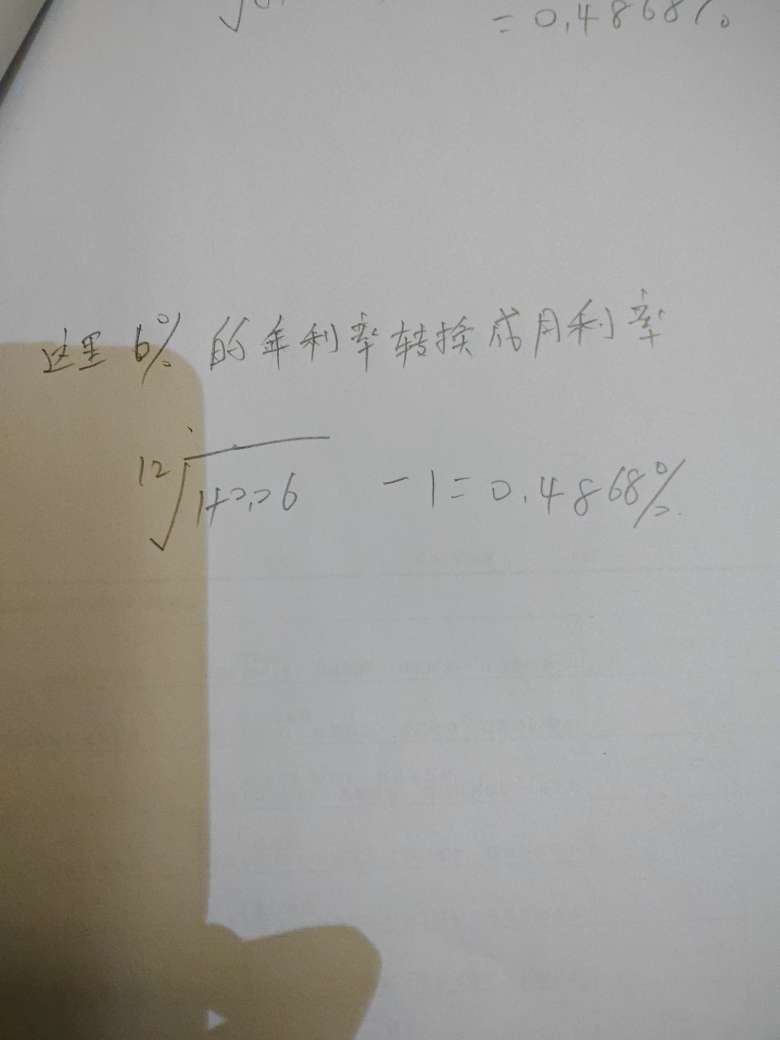 =0.4868%
这里 6% 的年利率转换成月利率
12√1+0.06 -1=0.4868%